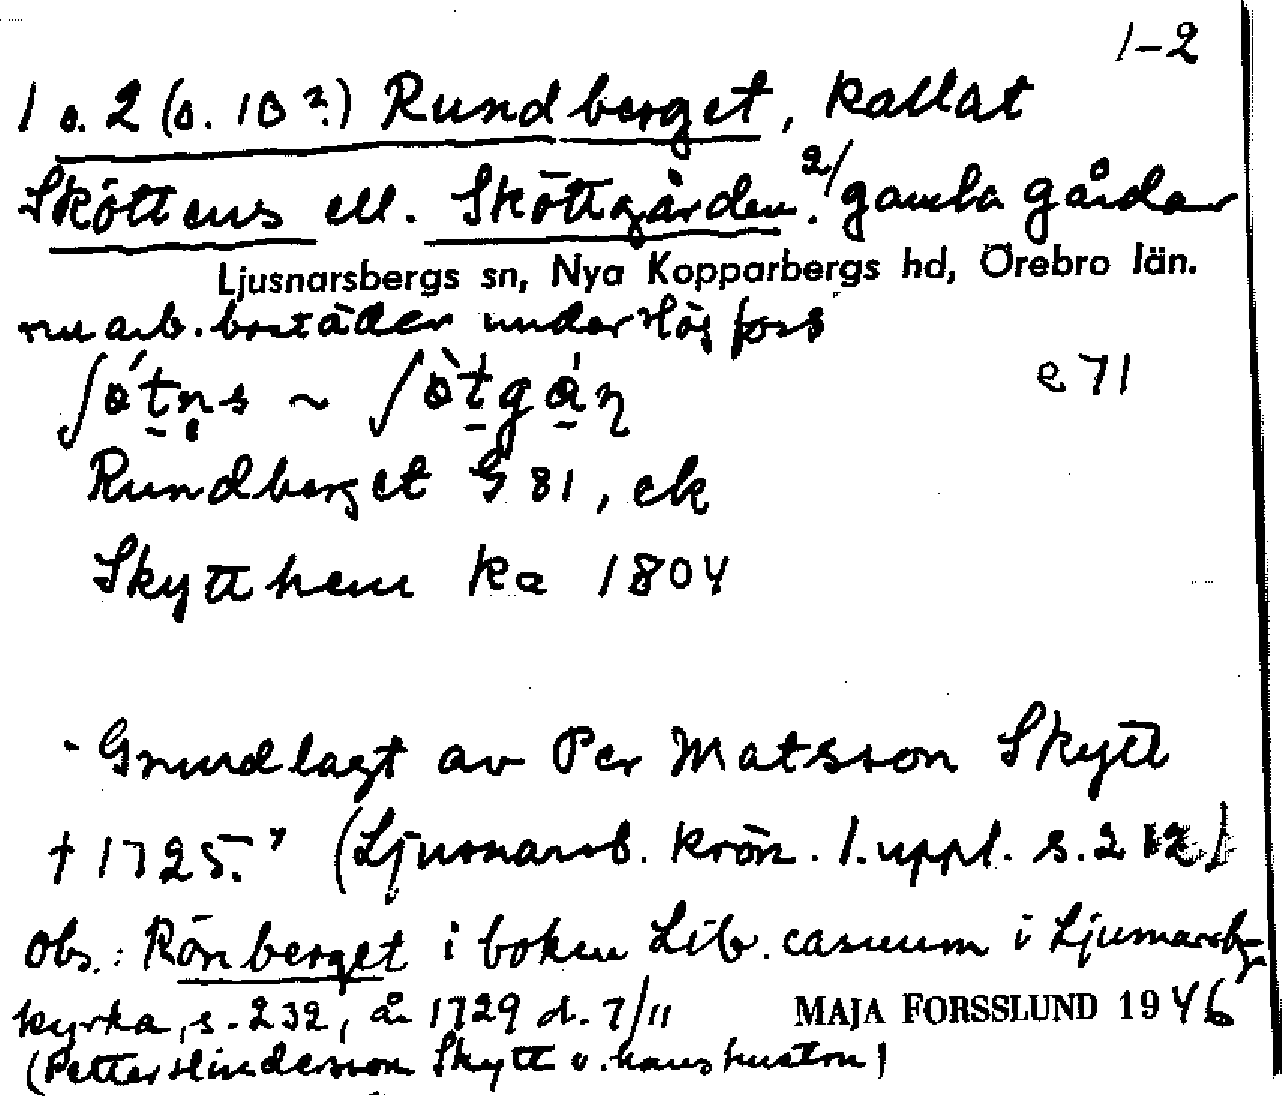 1-2
1 o. 2 (o. 10 ?) Rundberget, kallat
Sköttens ell. Sköttgården. 2/ gamla gårdar
Ljusnarsbergs sn, Nya Kopparbergs hd, Örebro län.
nu arb. bostäder under Högfors
e 71
Rundberget G 81, ek
Skytthem Ka 1804
"Grundlagt av Per Matsson Skytt
† 1725." (Ljusnarsb. krön. 1. uppl. s. 212)
Obs.: Rönberget i boken Lib. casuum i Ljusnarsbg-
kyrka, s. 232, år 1729 d. 7/11
MAJA FORSSLUND 1946
(Petter Hindersson Skytt o. hans hustru)